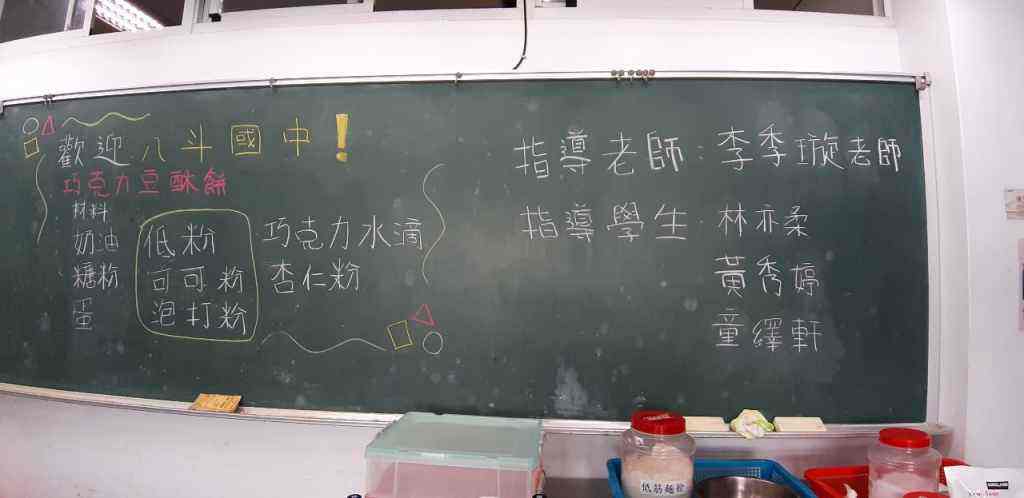 歡迎八斗國中!
巧克力豆酥餅
材料
奶油
糖粉
蛋
低粉
可可粉
泡打粉
巧克力水滴
杏仁粉
指導老師:李季璇老師
指導學生:林亦柔
黃秀婷
童繹軒
低筋麵粉